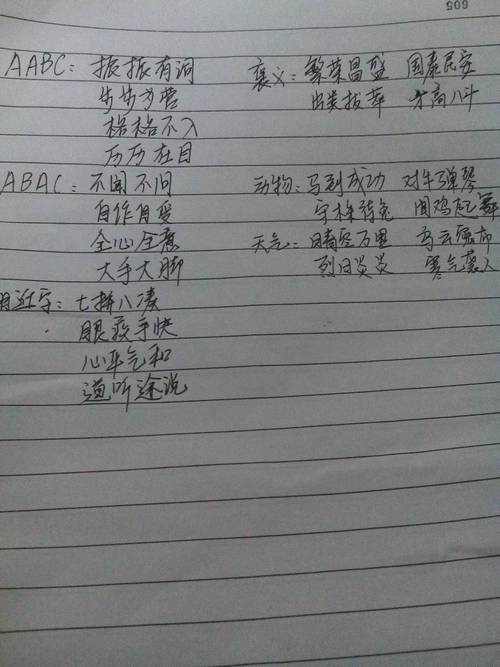 605
AABC：振振有词 褒义：繁荣昌盛 国泰民安
步步为营 出类拔萃 才高八斗
格格不入
历历在目
ABAC：不闻不问 动物：马到成功 对牛弹琴
自作自受 守株待兔 闻鸡起舞
全心全意 天气：晴空万里 乌云密布
大手大脚 烈日炎炎 寒气袭人
近字：七拼八凑
眼疾手快
心平气和
道听途说